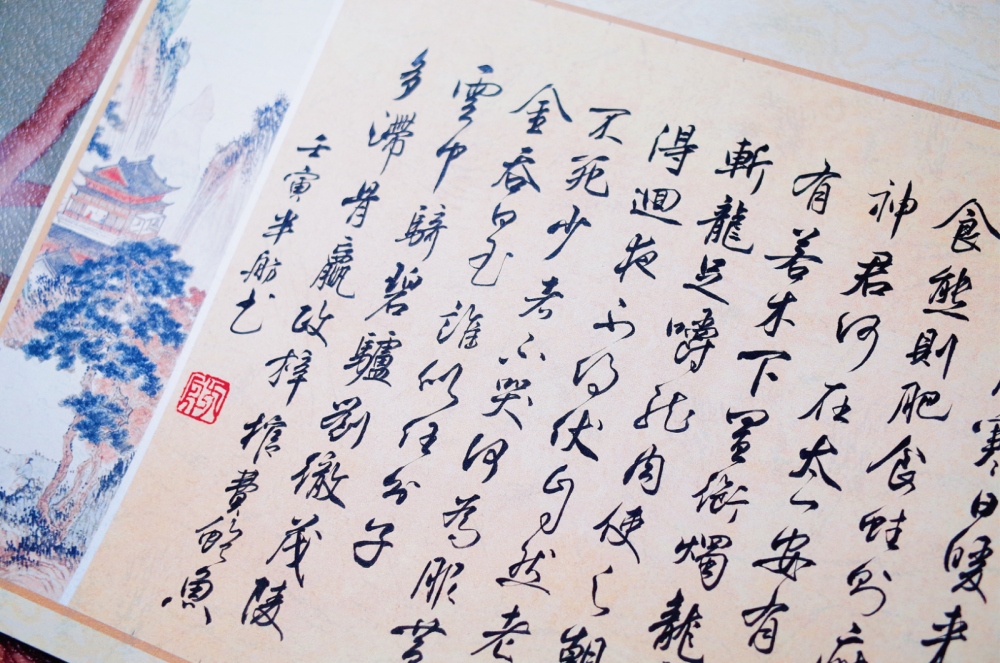 寒日暖来
食熊則肥食蛙則瘦
神君何在太一安有
有若木下置銜燭龍
斬龍足嚼龍肉使之朝
得迴夜不得伏自然老
不死少者不哭何為服黃
金吞白玉誰似任公子
雲中騎碧驢劉徹茂陵
多滯骨嬴政梓棺費鮑魚
壬寅半舫书